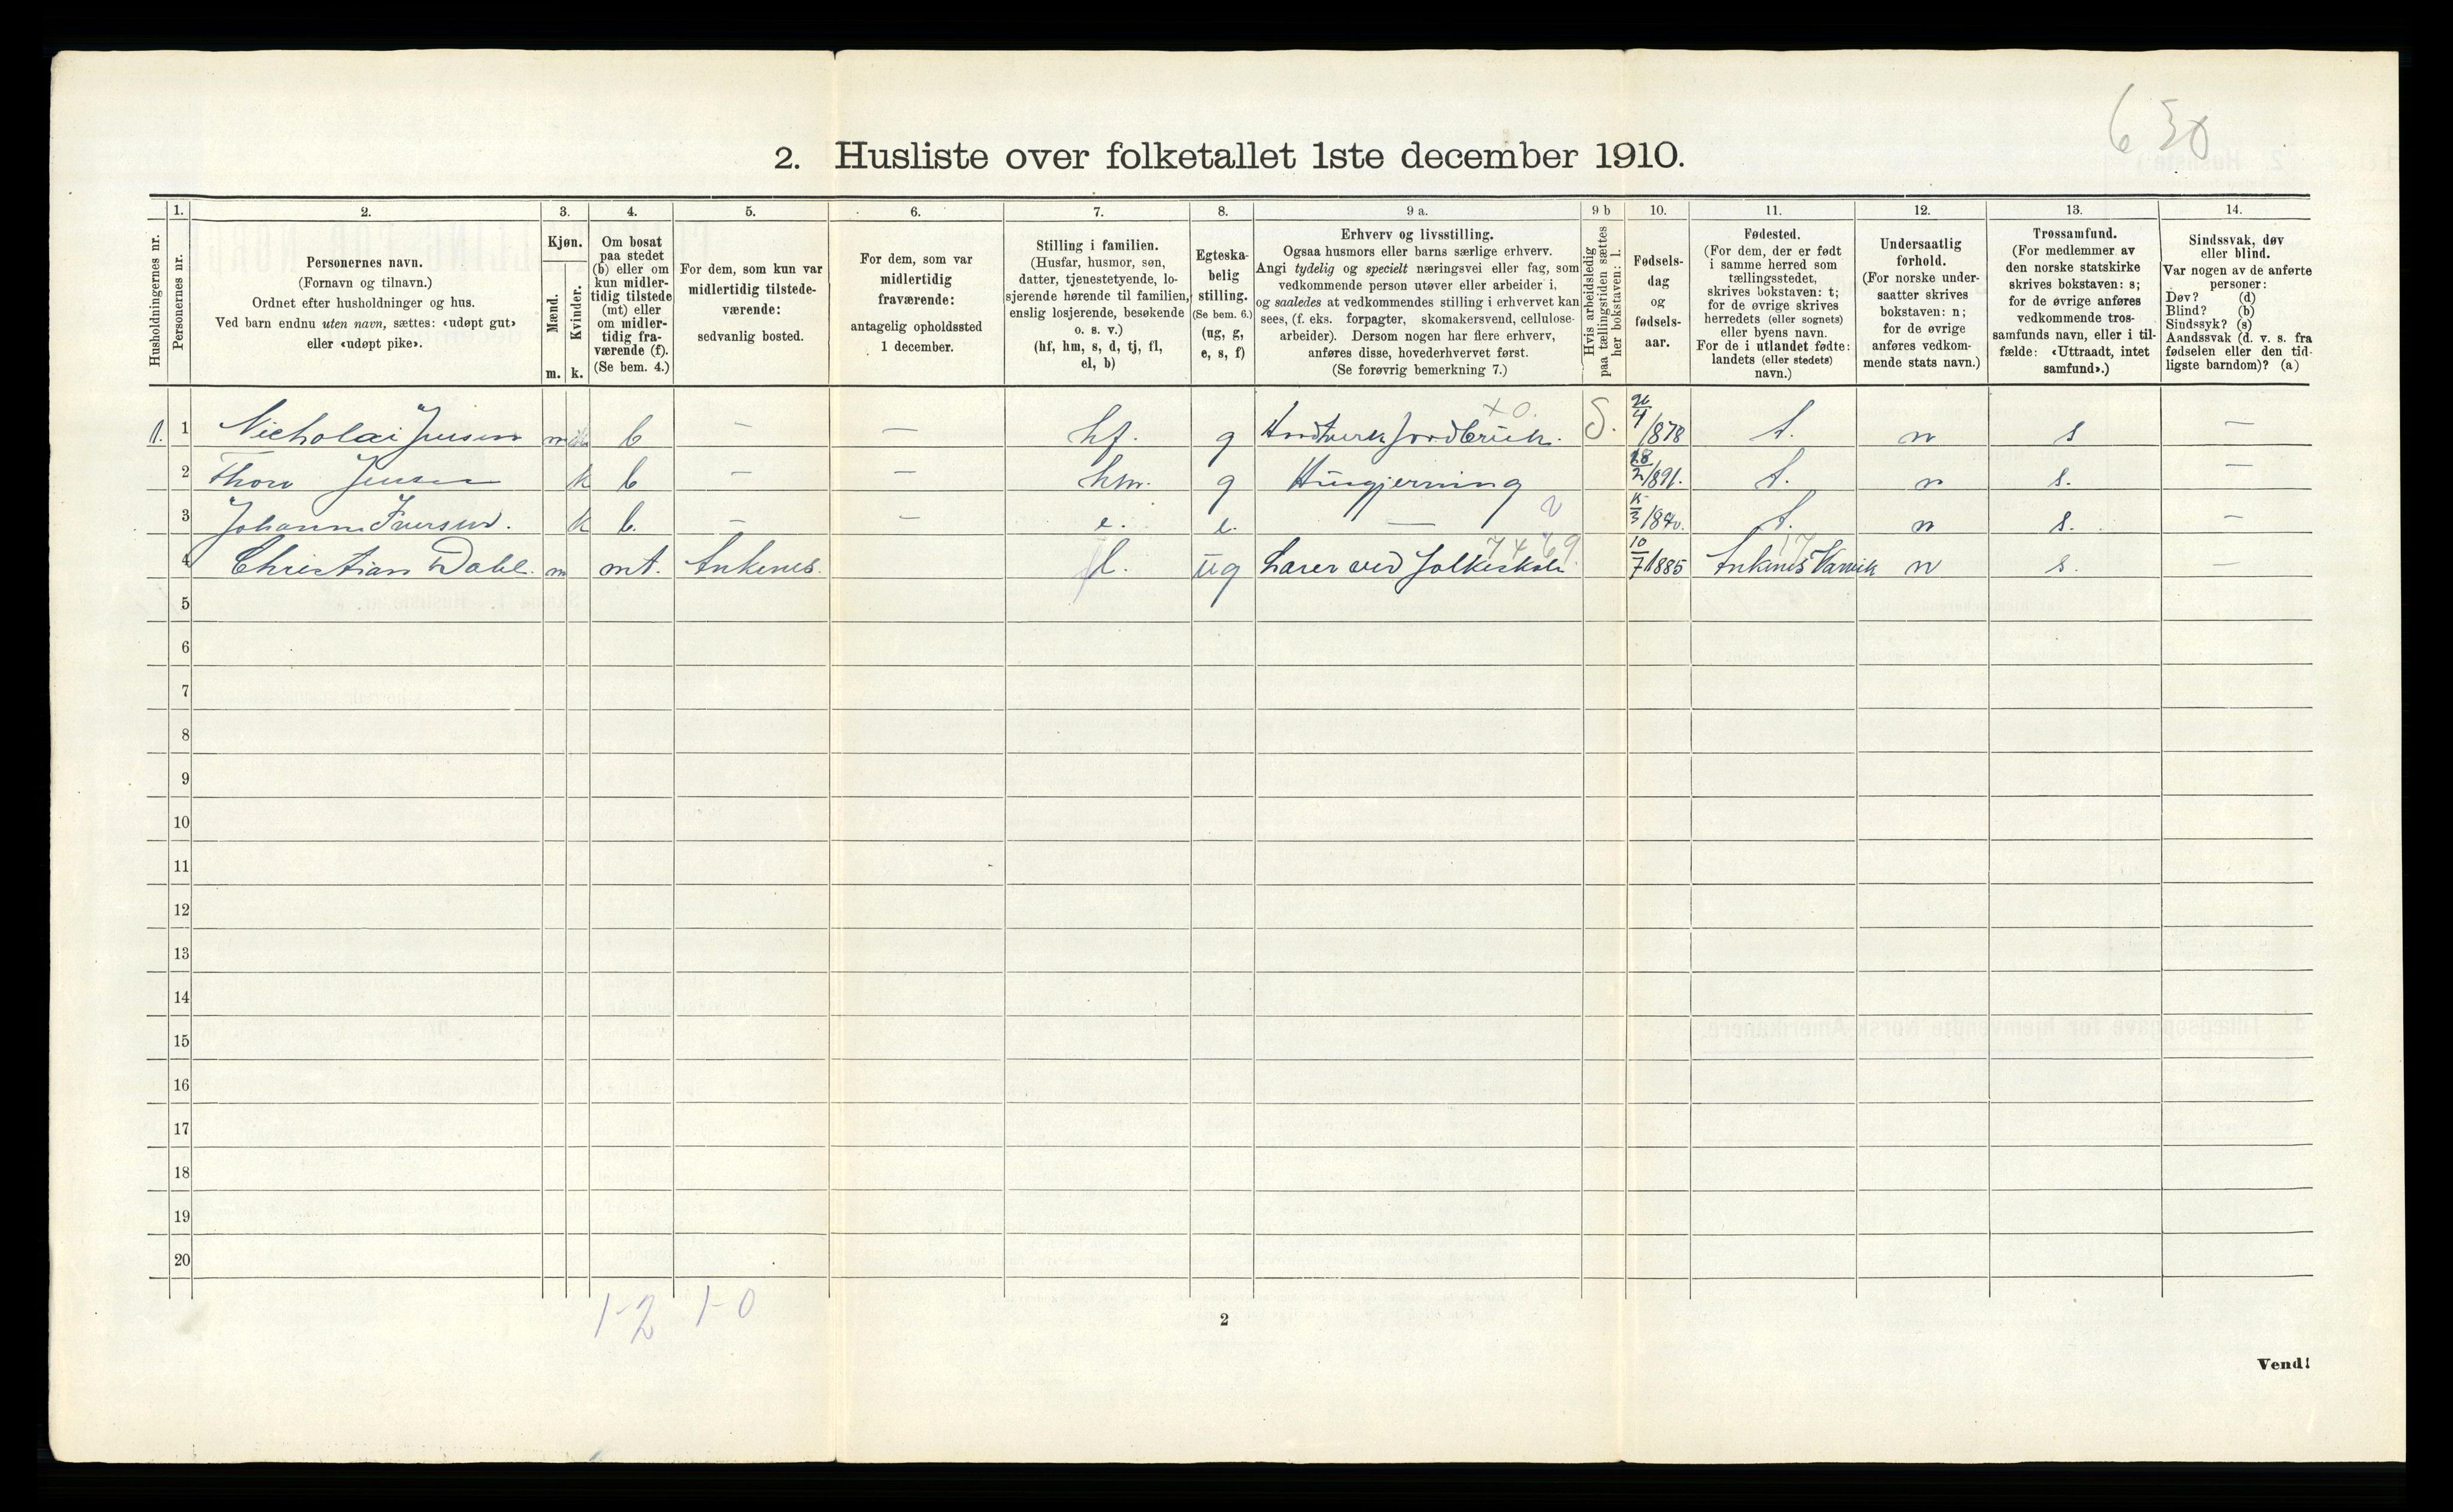 6 30
2. Husliste over folketallet 1ste december 1910.
Husholdningernes nr.
1.
Personernes nr.
2.
Personernes navn.
(Fornavn og tilnavn.)
Ordnet efter husholdninger og hus.
Ved barn endnu uten navn, sættes: «udøpt gut»
eller «udøpt pike».
3.
Kjøn.
Mænd.
Kvinder.
m. k.
4.
Om bosat
paa stedet
(b) eller om
kun midler-
tidig tilstede
(mt) eller
om midler-
tidig fra-
værende (f).
(Se bem. 4.)
5.
For dem, som kun var
midlertidig tilstede-
værende:
sedvanlig bosted.
6.
For dem, som var
midlertidig
fraværende:
antagelig opholdssted
1 december.
7.
Stilling i familien.
(Husfar, husmor, søn,
datter, tjenestetyende, lo-
sjerende hørende til familien,
enslig losjerende, besøkende
o. s. v.)
(hf, hm, s, d, tj, fl,
el, b)
8.
Egteska-
belig
stilling.
(Se bem. 6.)
(ug, g,
e, s, f)
9 a.
Erhverv og livsstilling.
Ogsaa husmors eller barns særlige erhverv.
Angi tydelig og specielt næringsvei eller fag, som
vedkommende person utøver eller arbeider i,
og saaledes at vedkommendes stilling i erhvervet kan
sees, (f. eks. forpagter, skomakersvend, cellulose-
arbeider). Dersom nogen har flere erhverv,
anføres disse, hovederhvervet først.
(Se forøvrig bemerkning 7.)
9 b
Hvis arbeidsledig
paa tællingstiden sættes
her bokstaven: l.
10.
Fødsels-
dag
og
fødsels-
aar.
11.
Fødested.
(For dem, der er født
i samme herred som
tællingsstedet,
skrives bokstaven: t;
for de øvrige skrives
herredets (eller sognets)
eller byens navn.
For de i utlandet fødte:
landets (eller stedets)
navn.)
12.
Undersaatlig
forhold.
(For norske under-
saatter skrives
bokstaven: n;
for de øvrige
anføres vedkom-
mende stats navn.)
13.
Trossamfund.
(For medlemmer av
den norske statskirke
skrives bokstaven: s;
for de øvrige anføres
vedkommende tros-
samfunds navn, eller i til-
fælde: «Uttraadt, intet
samfund».)
14.
Sindssvak, døv
eller blind.
Var nogen av de anførte
personer:
Døv? (d)
Blind? (b)
Sindssyk? (s)
Aandssvak (d. v. s. fra
fødselen eller den tid-
ligste barndom)? (a)
1. 1 Nicholai Jensen m b — — hf. g jordbruk. x o. S. 26/4 /878 t. n s —
2 Thora Jensen k b — — hm. g Husgjerning 18/2 /891. t. n s. —
3 Johanna Iversen. k b. — — e. e. — 15/3 /840. t. n s. —
4 Christian Dahl. m mt. Ankenes. l. ug Lærer ved folkeskole 7469 10/7 1885 Ankenes 17 n s. —
5
6
7
8
9
10
11
12
13
14
15
16
17
18
19
20
1-2 1-0
2
Vend!